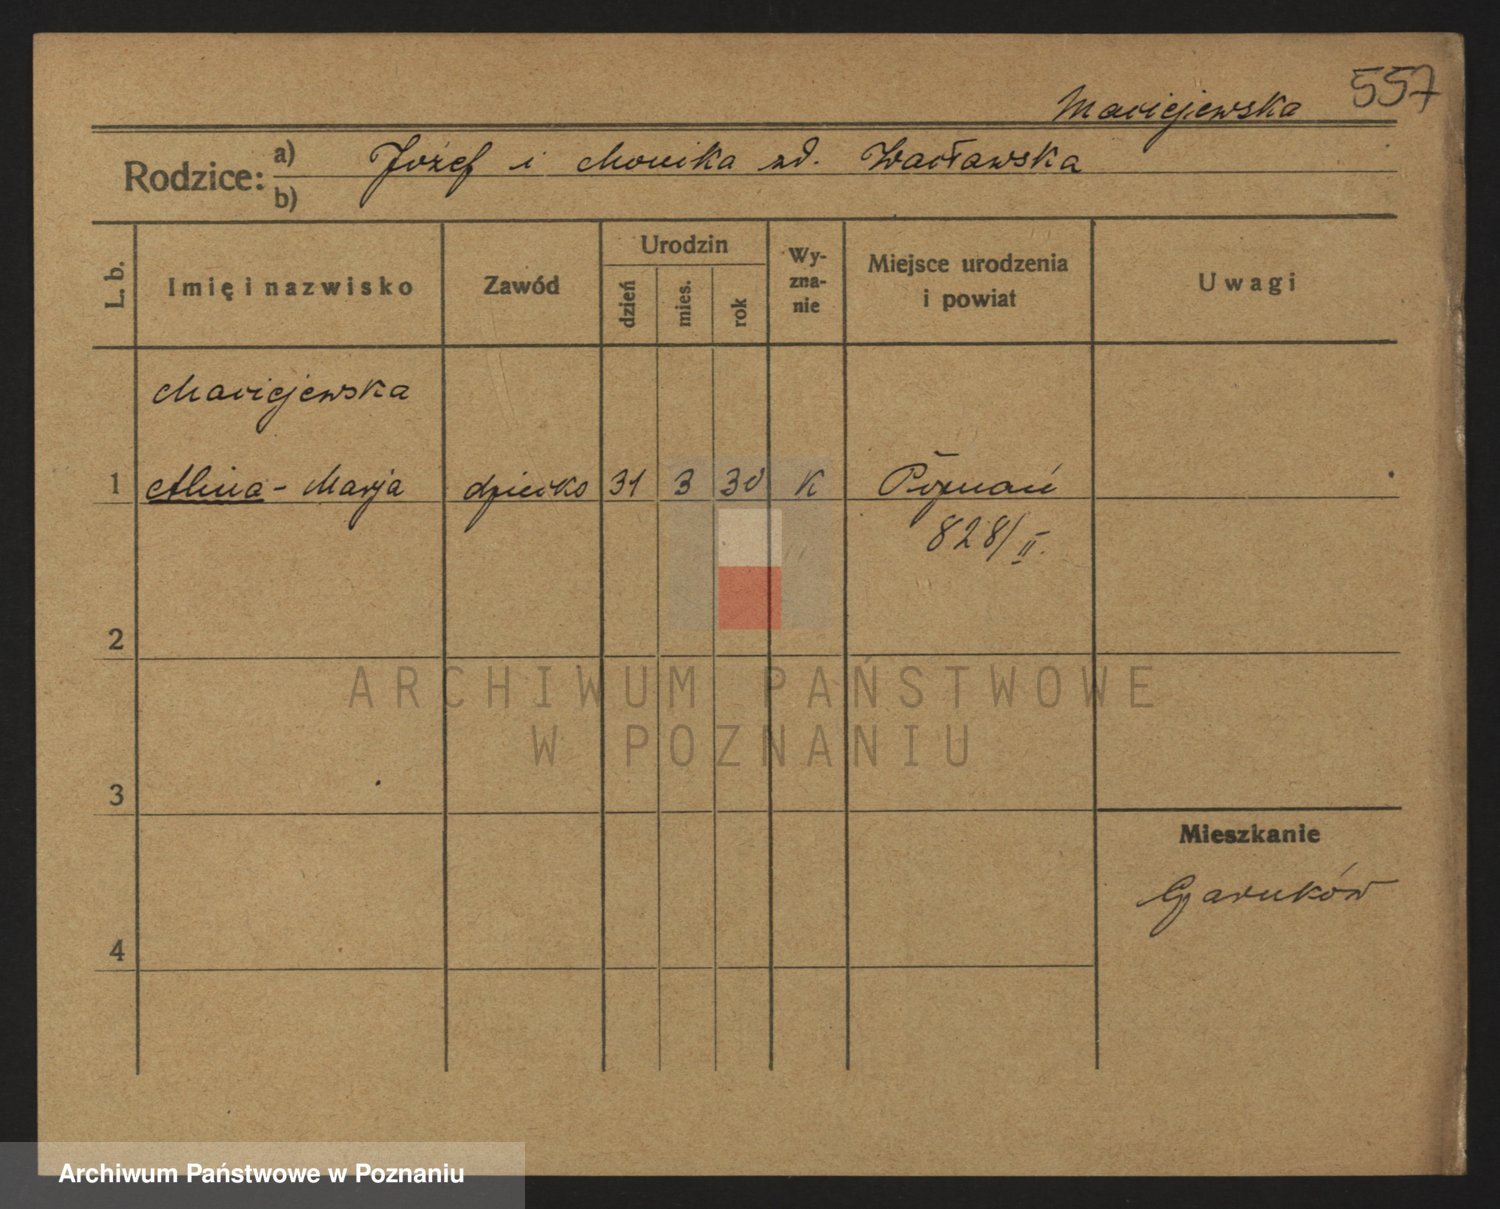 557
Maciejewska
Rodzice: a) Józef i Monika zd. Wacławska
b)
L. b. Imię i nazwisko Zawód Urodzin dzień mies. rok Wyzna-nie Miejsce urodzenia i powiat Uwagi
Maciejewska
1 Alina - Marja dziecko 31 3 30 K Poznań
828/II.
2
ARCHIWUM PAŃSTWOWE
W POZNANIU
3
Mieszkanie
4
Archiwum Państwowe w Poznaniu